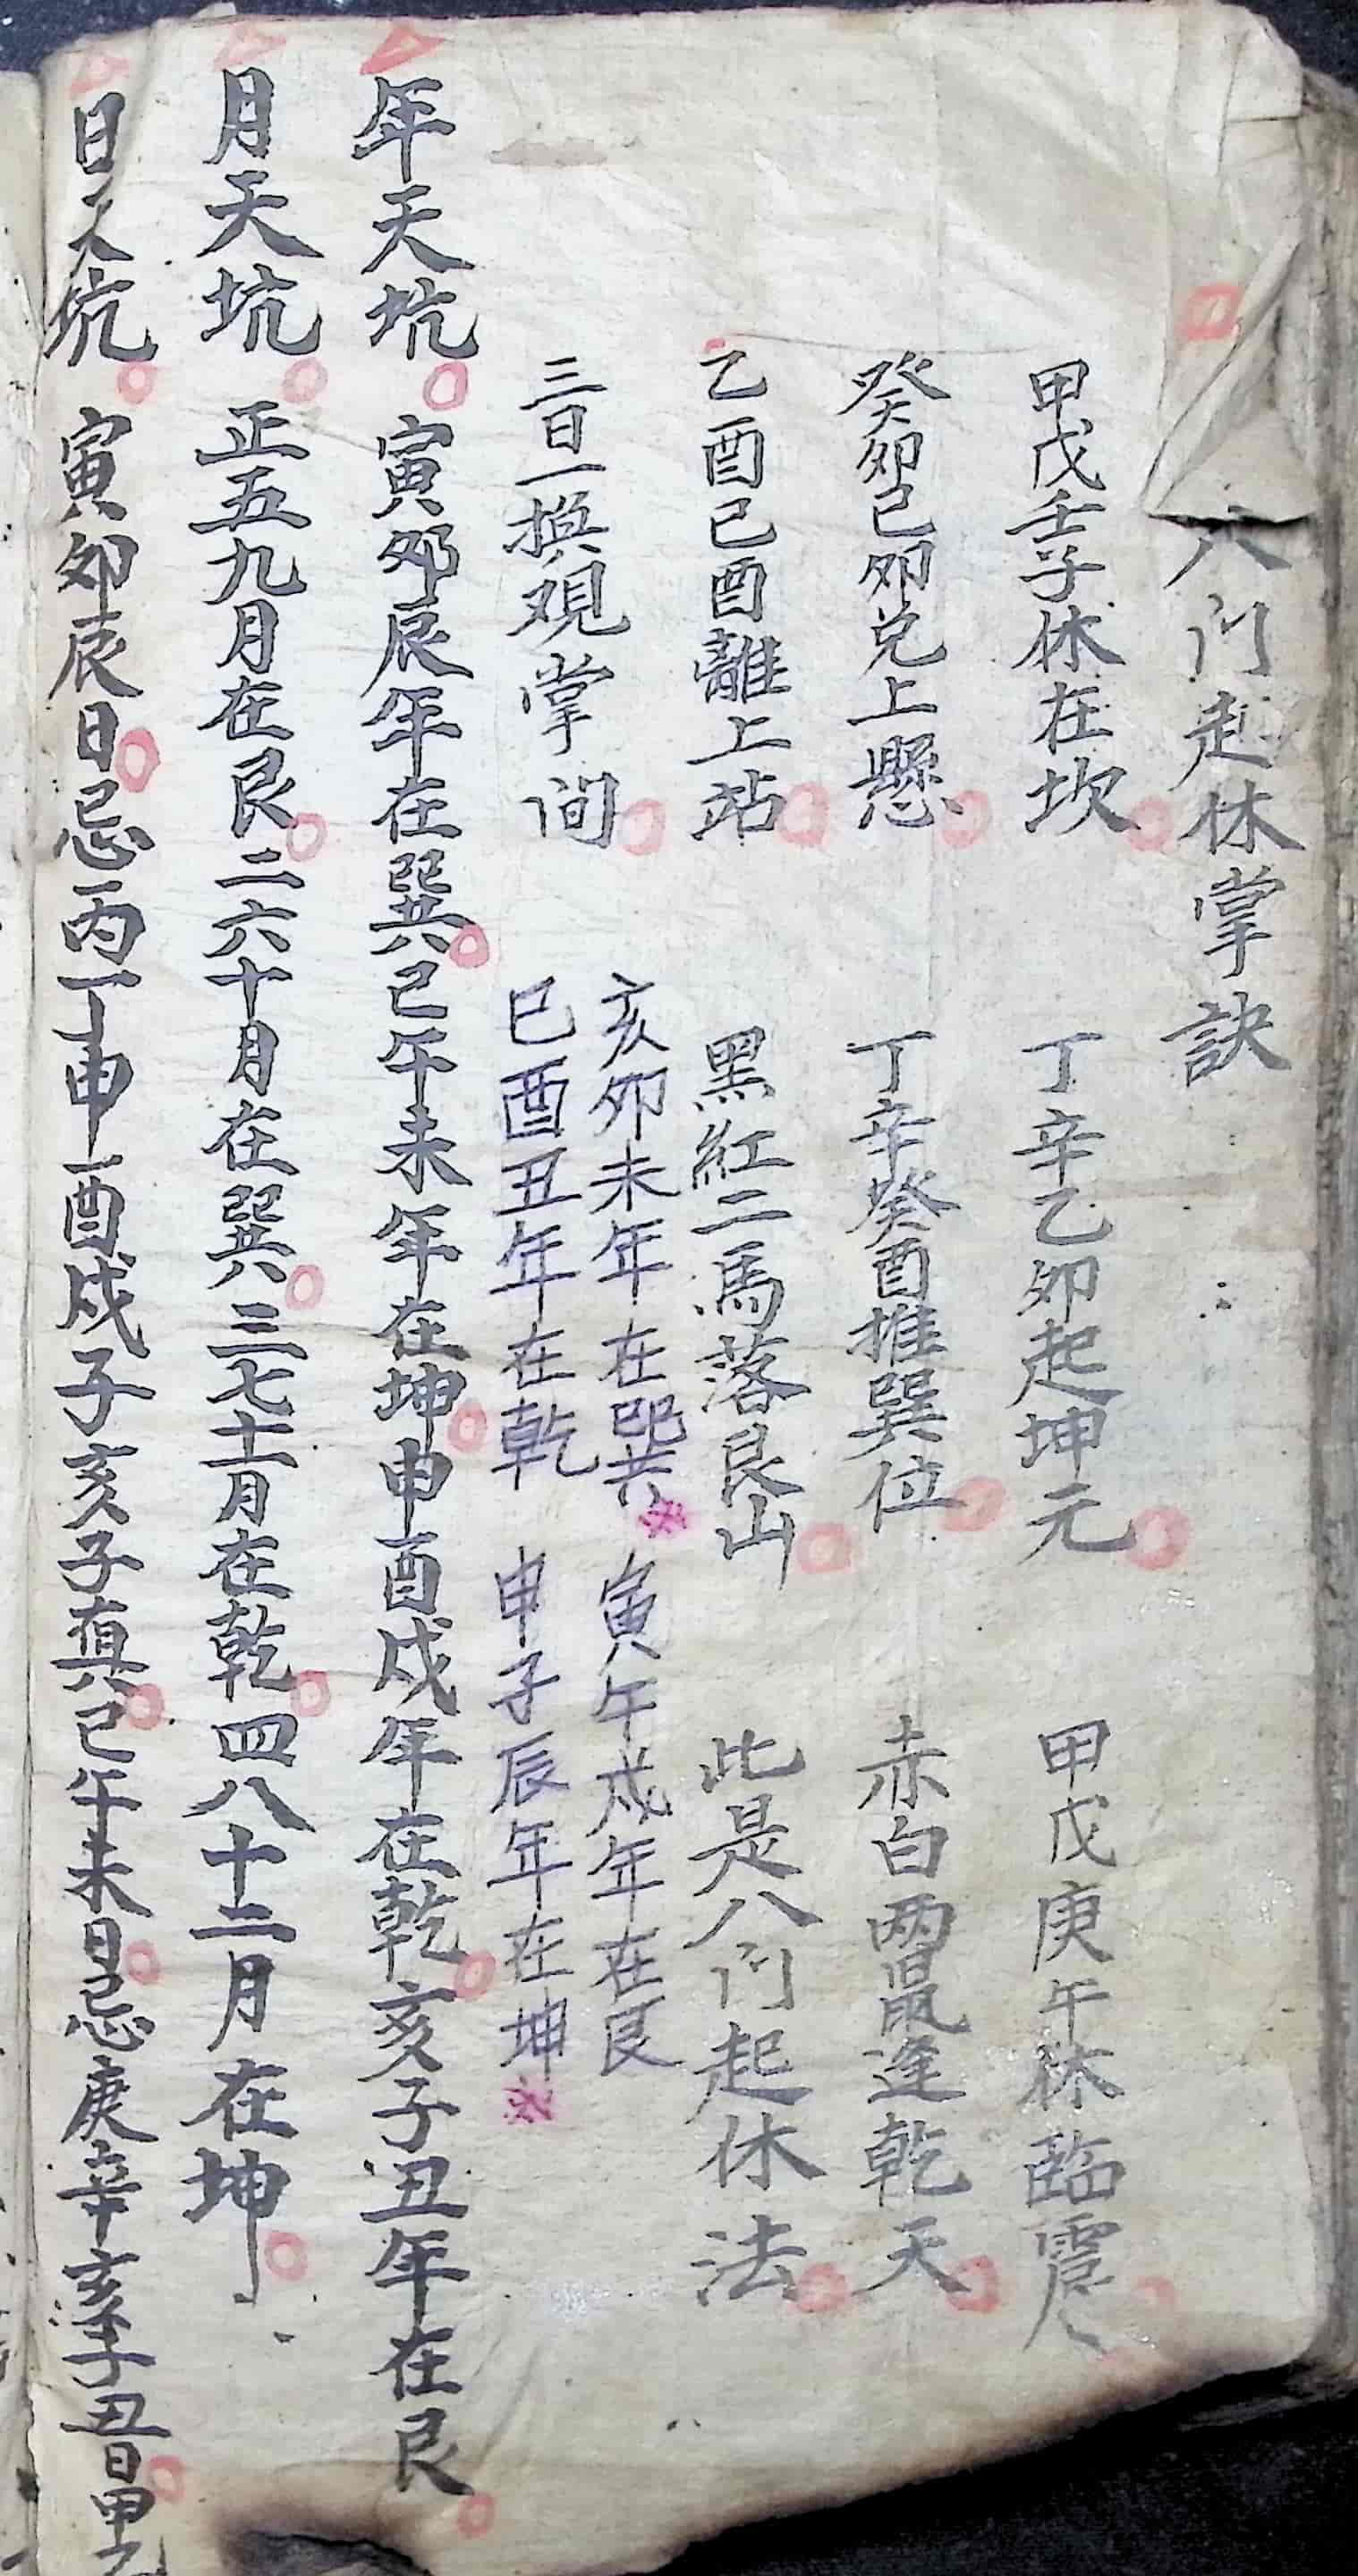 八门起休掌訣
甲戊壬子休在坎 丁辛乙卯起坤元 甲戊庚午休臨震
癸卯己卯兑上懸 丁辛癸酉推巽位 赤白两鼠逢乾天
乙酉己酉離上站 黑紅二馬落艮山 此是八门起休法
三日一换观掌间
亥卯未年在巽 寅午戌年在艮
巳酉丑年在乾 申子辰年在坤
年天坑 寅卯辰年在巽 巳午未年在坤 申酉戌年在乾 亥子丑年在艮
月天坑 正五九月在艮 二六十月在巽 三七十一月在乾 四八十二月在坤
日天坑 寅卯辰日忌丙丁申酉戌子亥子真 巳午未日忌庚辛亥子丑日甲乙